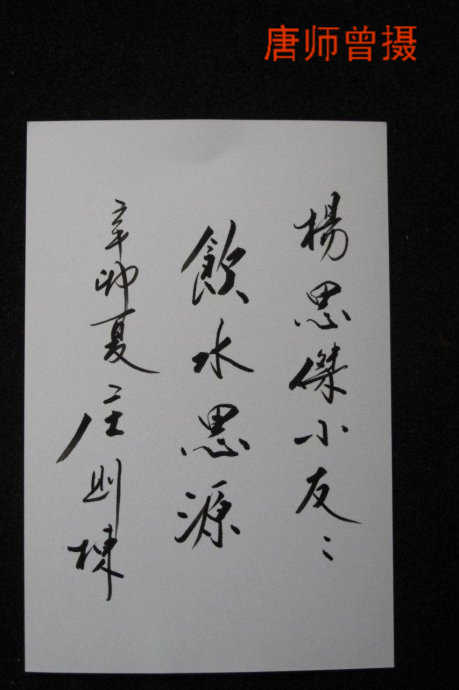 唐师曾摄
楊思傑小友：
飲水思源
辛卯夏庄则棟